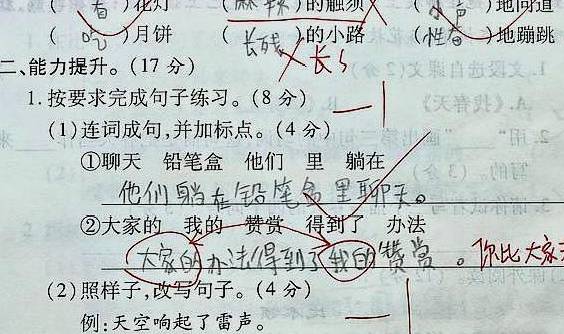 ( 看 )花灯 ( 麻辣 )的触须 ( 小声 )地问道
( 吃 )月饼 ( 长残 )的小路 ( 性奋 )地蹦跳
长
二、能力提升。(17 分)
1.按要求完成句子练习。(8 分) —1
(1)连词成句,并加标点。(4 分)
①聊天 铅笔盒 他们 里 躺在
他们躺在铅笔盒里聊天。
②大家的 我的 赞赏 得到了 办法
大家的办法得到了我的赞赏。你比大家
(2)照样子,改写句子。(4 分) —1
例:天空响起了雷声。